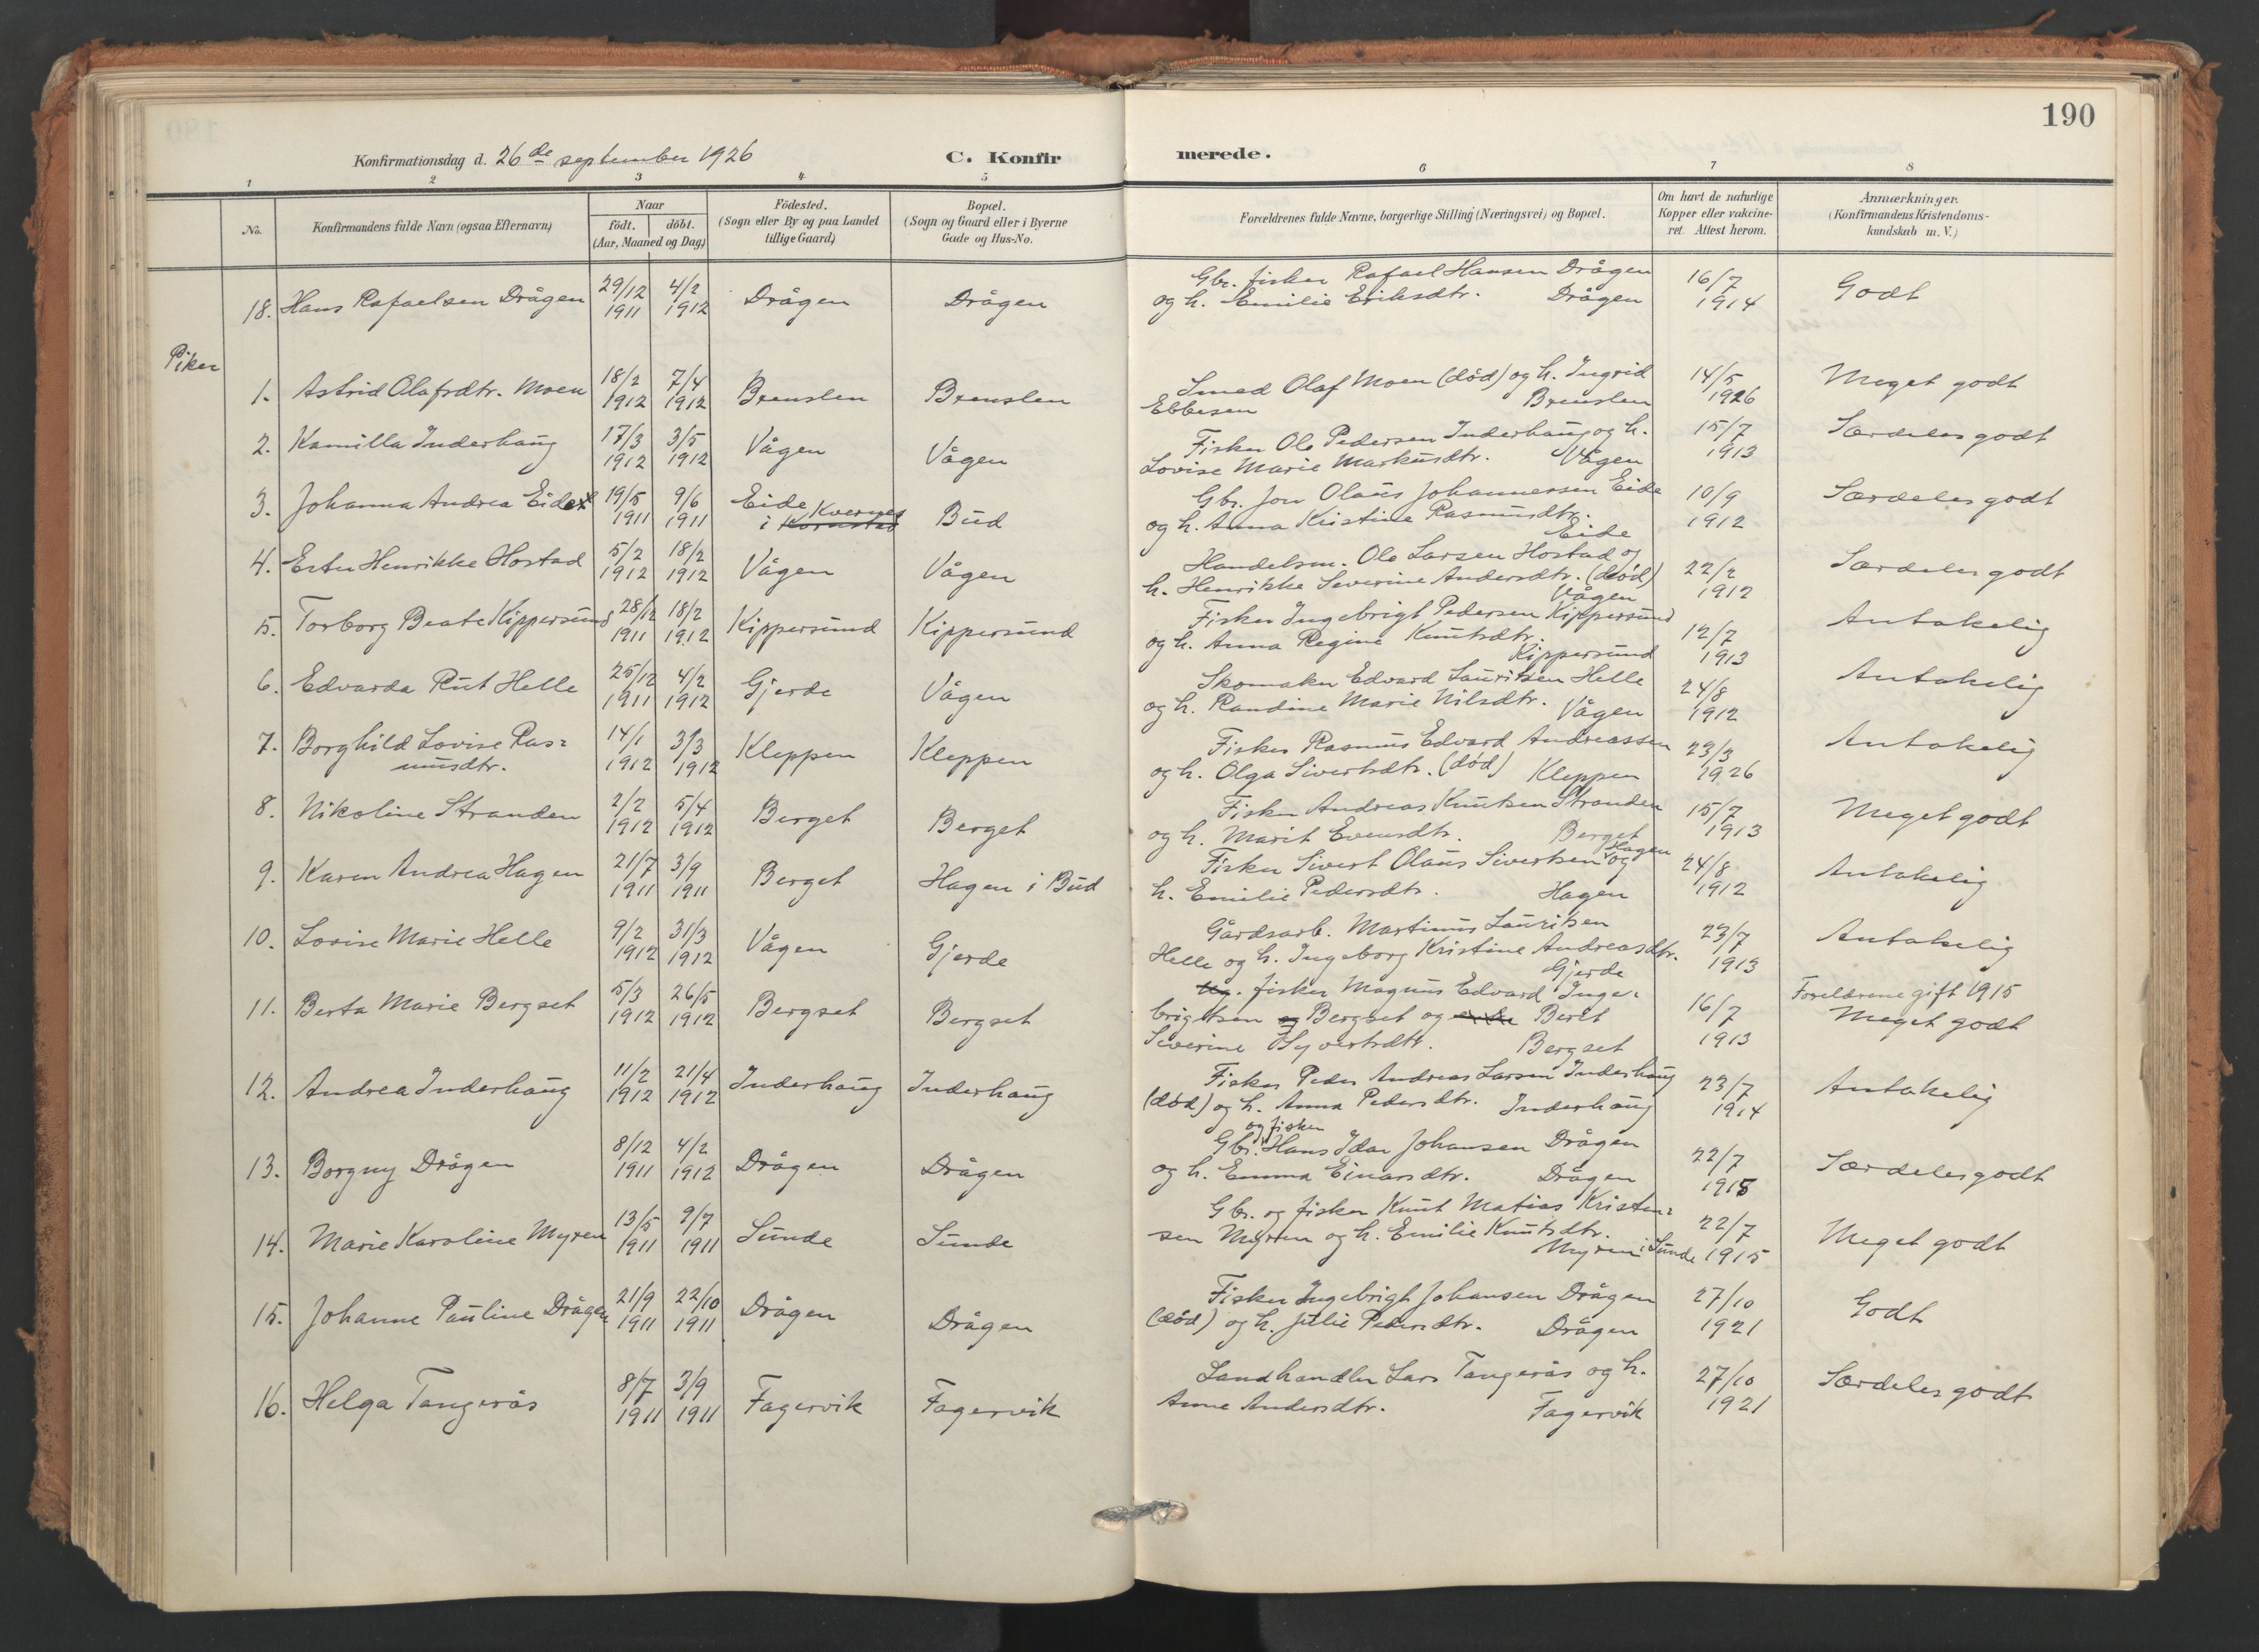 190
Konfirmationsdag d. 26de september 1926
C. Konfirmerede.
1 2 3 4 5 6 7 8
No.
Konfirmandens fulde Navn (ogsaa Efternavn)
Naar
födt. döbt.
(Aar, Maaned og Dag)
Födested.
(Sogn eller By og paa Landet
tillige Gaard)
Bopæl.
(Sogn og Gaard eller i Byerne
Gade og Hus-No.
Forældrenes fulde Navne, borgerlige Stilling (Næringsvei) og Bopæl.
Om havt de naturlige
Kopper eller vakcine-
ret. Attest herom.
Anmærkninger.
(Konfirmandens Kristendoms-
kundskab m. V.)
18. Hans Rafaelsen Drågen 29/12 1911 4/2 1912 Drågen Drågen
Gbr. fisker Rafael Hansen Drågen
og h. Emilie Eriksdtr. Drågen
16/7 1914 Godt
Piker
1. Astrid Olafsdtr. Moen 18/2 1912 7/4 1912 Brenslen Brenslen
Smed Olaf Moen (död) og h. Ingrid
Ebbesen Brenslen
14/5 1926 Meget godt
2. Kamilla Inderhaug 17/3 1912 3/5 1912 Vågen Vågen
Fisker Ole Pedersen Inderhaug og h.
Lovise Marie Markusdtr. Vågen
15/7 1913 Særdeles godt
3. Johanna Andrea Eide 19/5 1911 9/6 1911 Eide i Kvernes Kornstad Bud
Gbr. Jon Olaus Johannessen Eide
og h. Anna Kristine Rasmusdtr.
Eide
10/9 1912 Særdeles godt
4. Ester Henrikke Hostad 5/2 1912 18/2 1912 Vågen Vågen
Handelsm. Ole Larsen Hostad og
h. Henrikke Severine Andersdtr. (död)
Vågen
22/2 1912 Særdeles godt
5. Torborg Beate Kippersund 28/12 1911 18/2 1912 Kippersund Kippersund
Fisker Ingebrigt Pedersen Kippersund
og h. Anna Regine Knutsdtr.
Kippersund
12/7 1913 Antakelig
6. Edvarda Rut Helle 25/12 1911 4/2 1912 Gjerde Vågen
Skomaker Edvard Lauritsen Helle
og h. Randine Marie Nilsdtr. Vågen
24/8 1912 Antakelig
7. Borghild Lovise Ras=
musdtr. 14/1 1912 3/3 1912 Kleppen Kleppen
Fisker Rasmus Edvard Andreassen
og h. Olga Sivertsdtr. (död) Kleppen
23/3 1926 Antakelig
8. Nikoline Stranden 2/2 1912 5/4 1912 Berget Berget
Fisker Andreas Knutsen Stranden
og h. Marit Evensdtr. Berget
15/7 1913 Meget godt
9. Karen Andrea Hagen 21/7 1911 3/9 1911 Berget Hagen i Bud
Fisker Sivert Olaus Sivertsen Hagen og
h. Emilie Pedersdtr. Hagen
24/8 1912 Antakelig
10. Lovise Marie Helle 9/2 1912 31/3 1912 Vågen Gjerde
Gårdsarb. Martinus Lauritsen
Helle og h. Ingeborg Kristine Andreasdtr.
Gjerde
23/7 1913 Antakelig
11. Berta Marie Bergset 5/3 1912 26/5 1912 Bergset Bergset
Ug. fisker Magnus Edvard Inge=
brigtsen og Bergset og Beret
Severine Syvertsdtr. Bergset
16/7 1913 Forelderne gift 1915
Meget godt
12. Andrea Inderhaug 11/2 1912 21/4 1912 Inderhaug Inderhaug
Fisker Peder Andreas Larsen Inderhaug
(död) og h. Anna Pedersdtr. Inderhaug
23/7 1914 Antakelig
13. Borgny Drågen 8/12 1911 4/2 1912 Drågen Drågen
Gbr. og fisker Hans Idar Johansen Drågen
og h. Emma Einarsdtr. Drågen
22/7 1915 Særdeles godt
14. Marie Karoline Myren 13/5 1911 9/7 1911 Sunde Sunde
Gbr. og fisker Knut Matias Kristen=
sen Myren og h. Emilie Knutsdtr.
Myren i Sunde
22/7 1915 Meget godt
15. Johanne Pauline Drågen 21/9 1911 22/10 1911 Drågen Drågen
Fisker Ingebrigt Johansen Drågen
(död) og h. Julie Pedersdtr. Drågen
27/10 1921 Godt
16. Helga Tangerås 8/7 1911 3/9 1911 Fagervik Fagervik
Landhandler Lars Tangerås og h.
Anne Andersdtr. Fagervik
27/10 1921 Særdeles godt